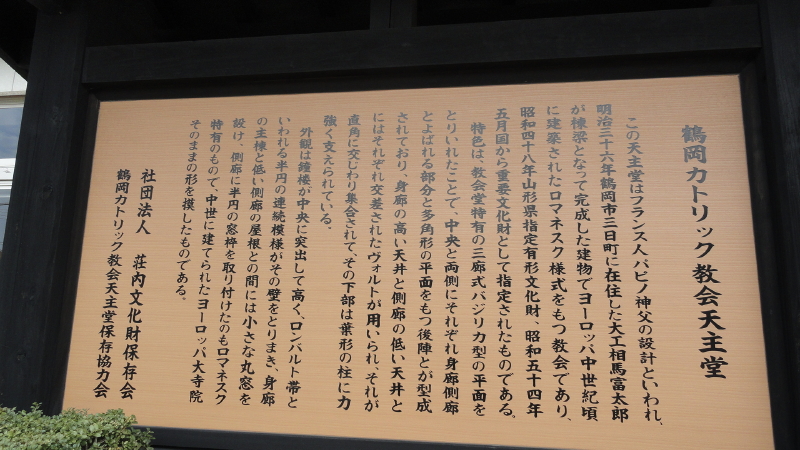 鶴岡カトリック教会天主堂
この天主堂はフランス人パピノ神父の設計といわれ、
明治三十六年鶴岡市三日町に在住した大工相馬富太郎
が棟梁となって完成した建物でヨーロッパ中世紀頃
に建築されたロマネスク様式をもつ教会であり、
昭和四十八年山形県指定有形文化財、昭和五十四年
五月国から重要文化財として指定されたものである。
特色は、教会堂特有の三廊式バジリカ型の平面を
とりいれたことで、中央と両側にそれぞれ身廊側廊
とよばれる部分と多角形の平面をもつ後陣とが型成
されており、身廊の高い天井と側廊の低い天井と
にはそれぞれ交差されたヴォルトが用いられ、それが
直角に交じわり集合されて、その下部は葉形の柱に力
強く支えられている。
外観は鐘楼が中央に突出して高く、ロンバルト帯と
いわれる半円の連続模様がその壁をとりまき、身廊
の主棟と低い側廊の屋根との間には小さな丸窓を
設け、側廊に半円の窓枠を取り付けたのもロマネスク
特有のもので、中世に建てられたヨーロッパ大寺院
そのままの形を摸したものである。
社団法人 荘内文化財保存会
鶴岡カトリック教会天主堂保存協力会